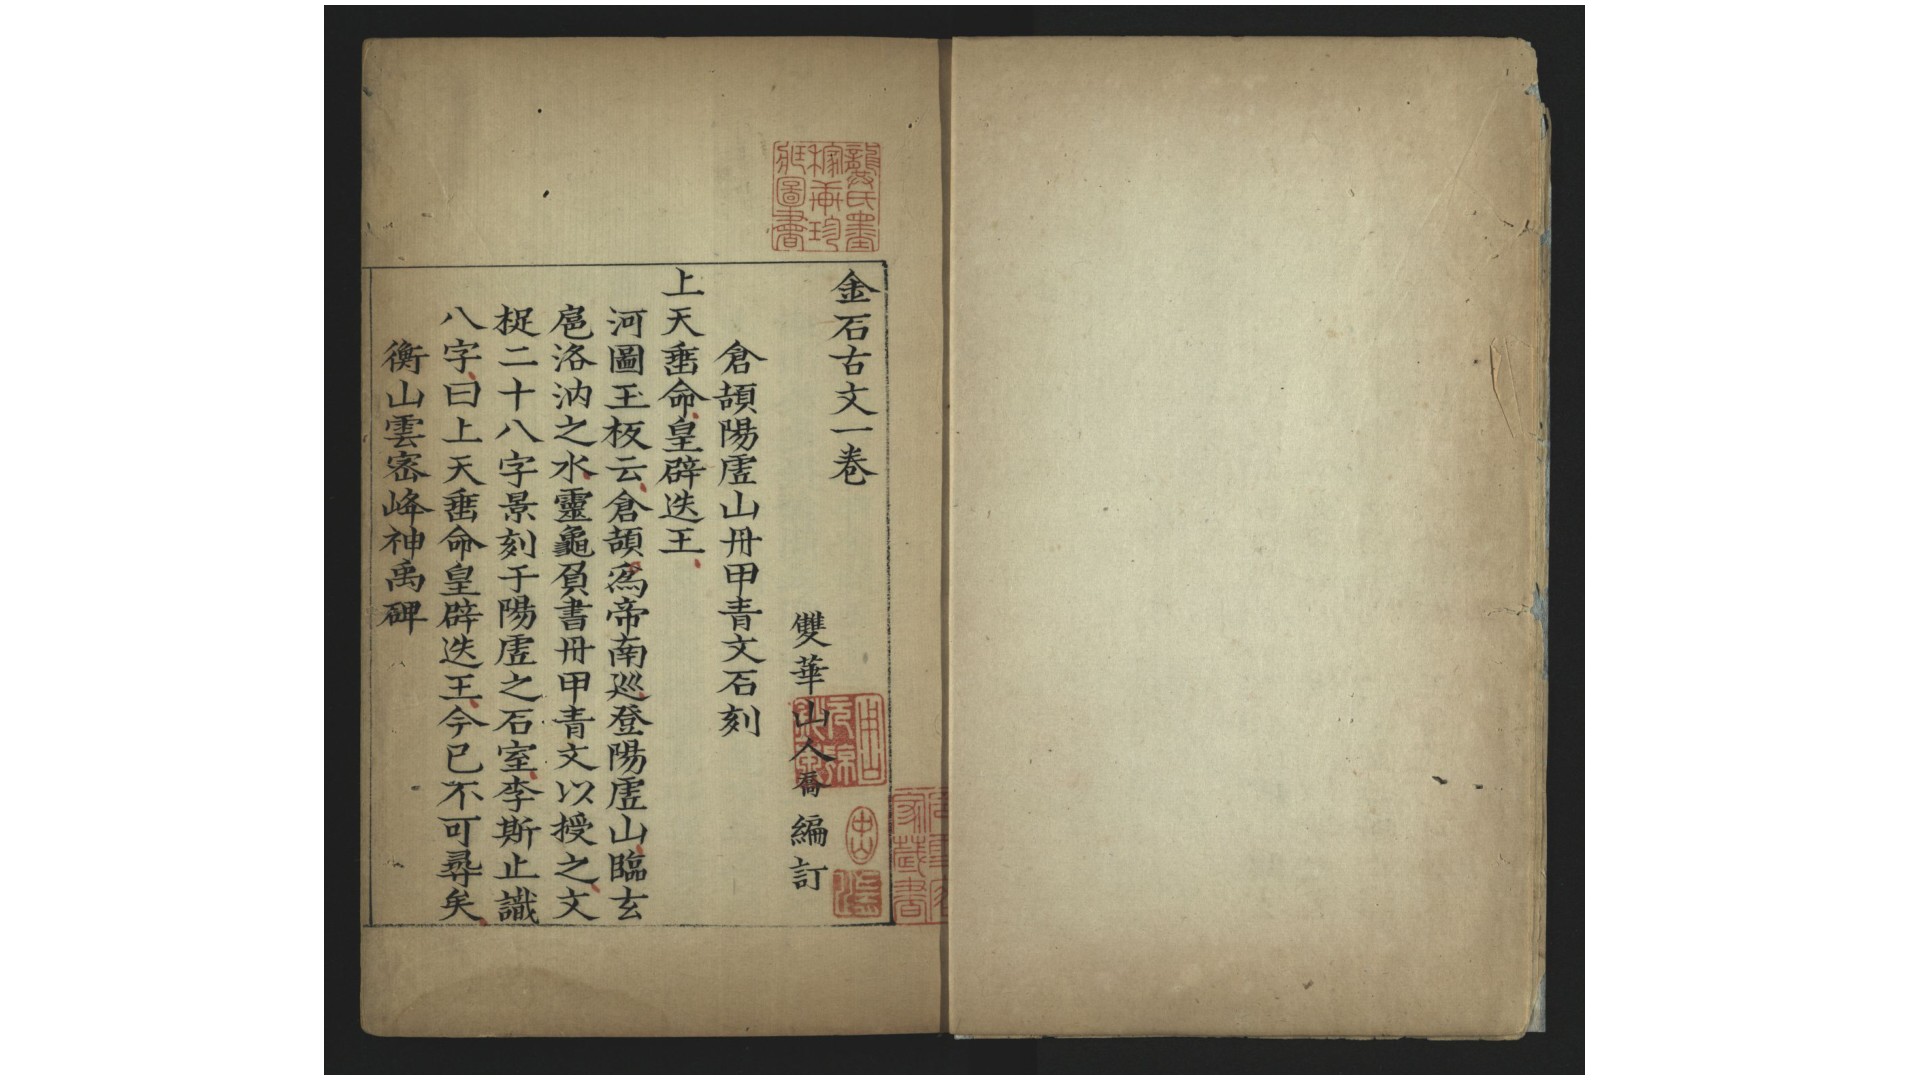 金石古文一卷
雙華山人喬編訂
倉頡陽虛山丹甲青文石刻
上天垂命皇辟迭王
河圖玉板云倉頡爲帝南巡登陽虛山臨玄
扈洛汭之水靈龜負書丹甲青文以授之文
捉二十八字景刻于陽虛之石室李斯止識
八字曰上天垂命皇辟迭王今已不可尋矣
衡山雲密峰神禹碑
圖書